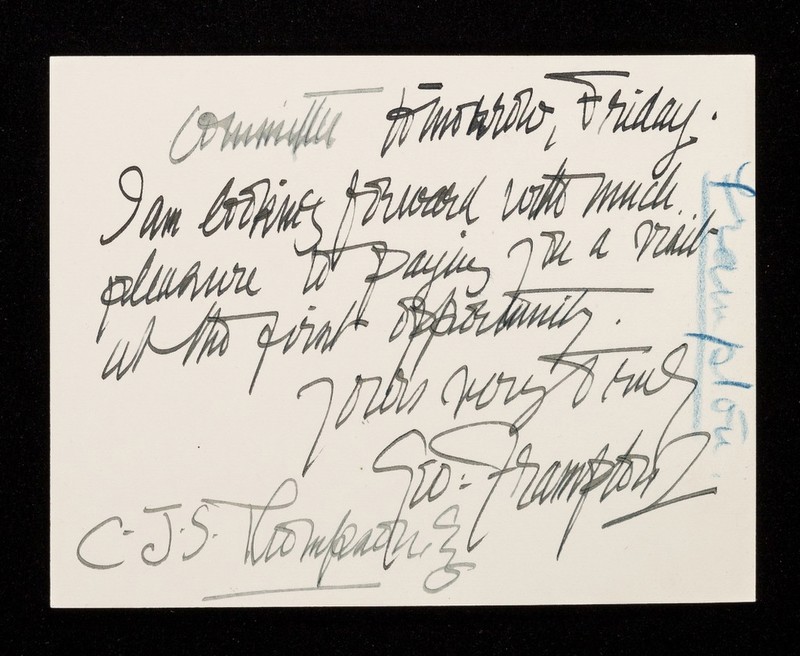 Committee tomorrow, Friday.
I am looking forward with much
pleasure to paying you a visit
at the first opportunity.
Yours very truly
Geo: Frampton
C. J. S. Thompson, Esq
Frampton